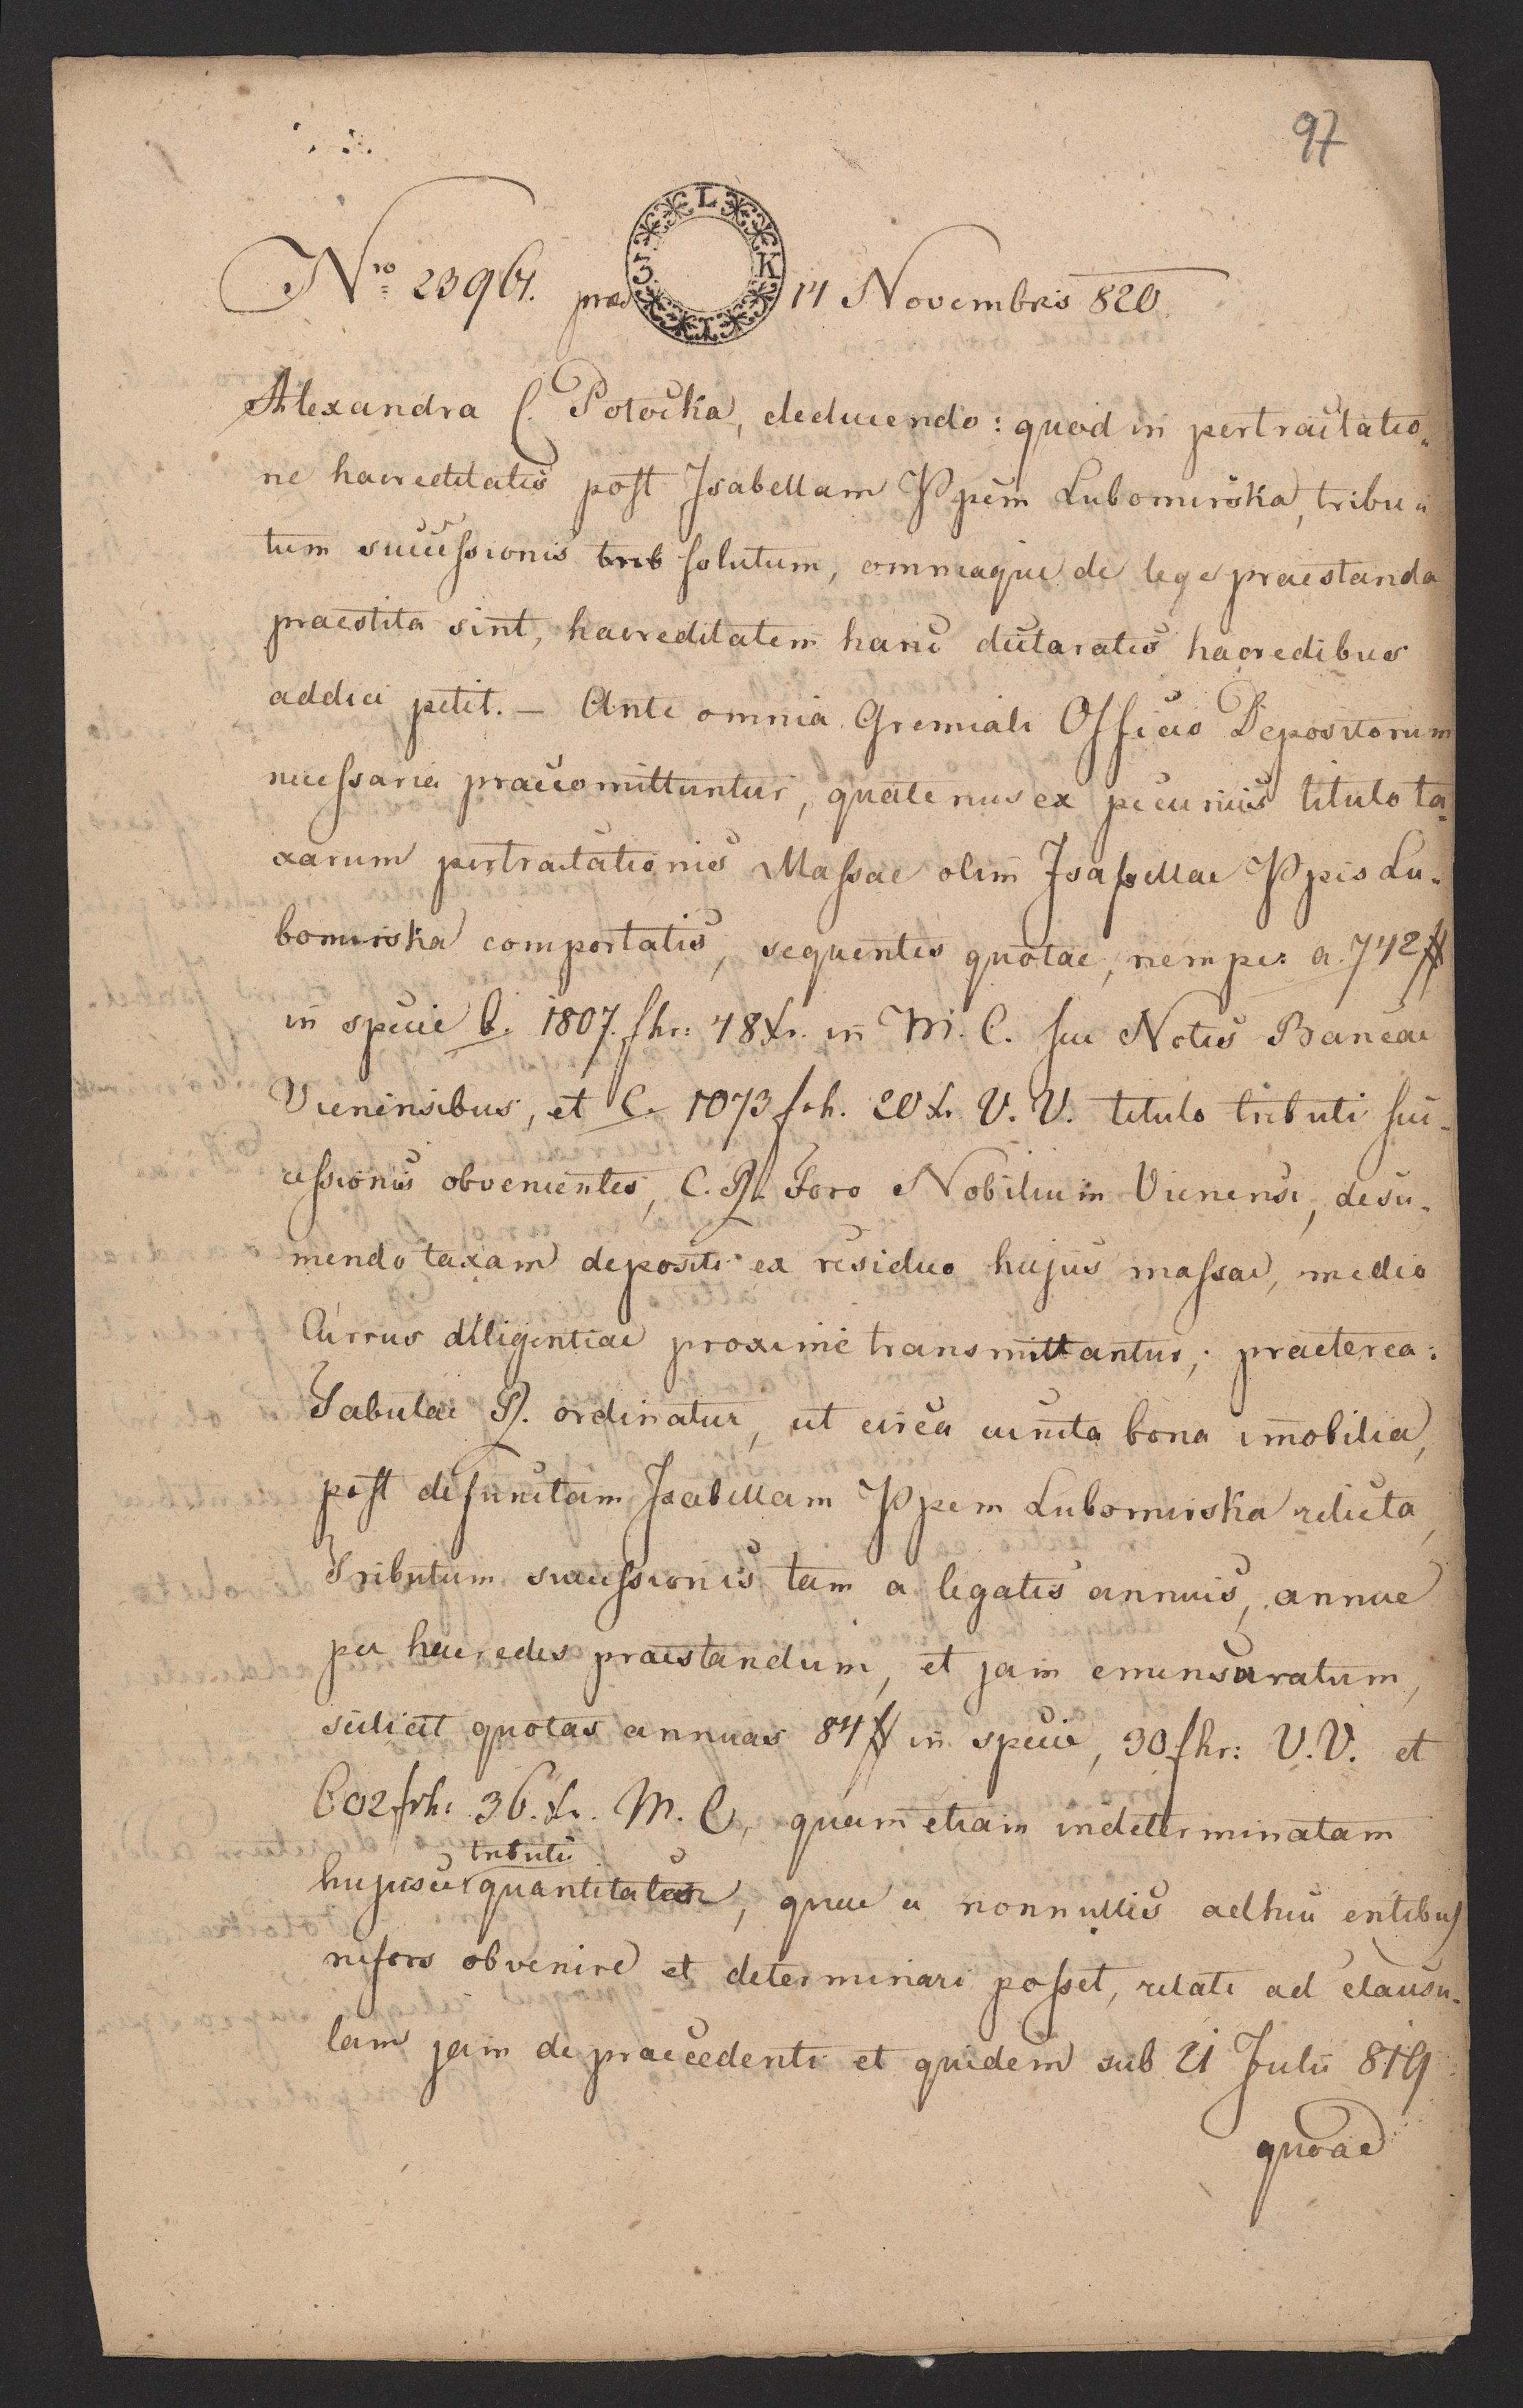 97
Nro 23961. praes 14 Novembris 820.
L
3 K
Alexandra C. Potocka, deducendo: quod in pertractatio-
ne haereditatis post Isabellam Ppem Lubomirska, tribu-
tum successionis trib solutum, omniaque de lege praestanda
praestita sint, haereditatem hanc declaratis haeredibus
addici petit. – Ante omnia Gremiali Officio Depositorum
necessaria praecomittuntur, quatenus ex pecuniis titulo ta-
xarum pertractationis Massae olim Isabellae Ppis Lu-
bomirska comportatis, sequentes quotae, nempe: a. 742 #
in specie b. 1807. fhr: 48 Xr. in M. C. seu Notis Bancae
Vienensibus, et C. 1073 frh. 20 Xr V. V. titulo tributi suc-
cessionis obvenientes, C. R. Foro Nobilium Vienensi, desu-
mendo taxam depositi ex residuo hujus massae, medio
Currus diligentiae proxime transmittantur; praeterea:
Tabulae R. ordinatur, ut circa cuncta bona imobilia,
post defunctam Isabellam Ppem Lubomirska relicta,
Tributum successionis tam a legatis annuis, annue
per haeredes praestandum, et jam emensuratum,
scilicet quotas annuas 84 # in specie, 30 fhr: V. V. et
602 frh: 36. Xr. M. C, quam etiam indeterminatam
tributi
hujusce quantitatem, quae a nonnullis adhuc entibus
nefors obvenire et determinari posset, relate ad clausu-
lam jam de praecedenti et quidem sub 21 Julii 819
quoad